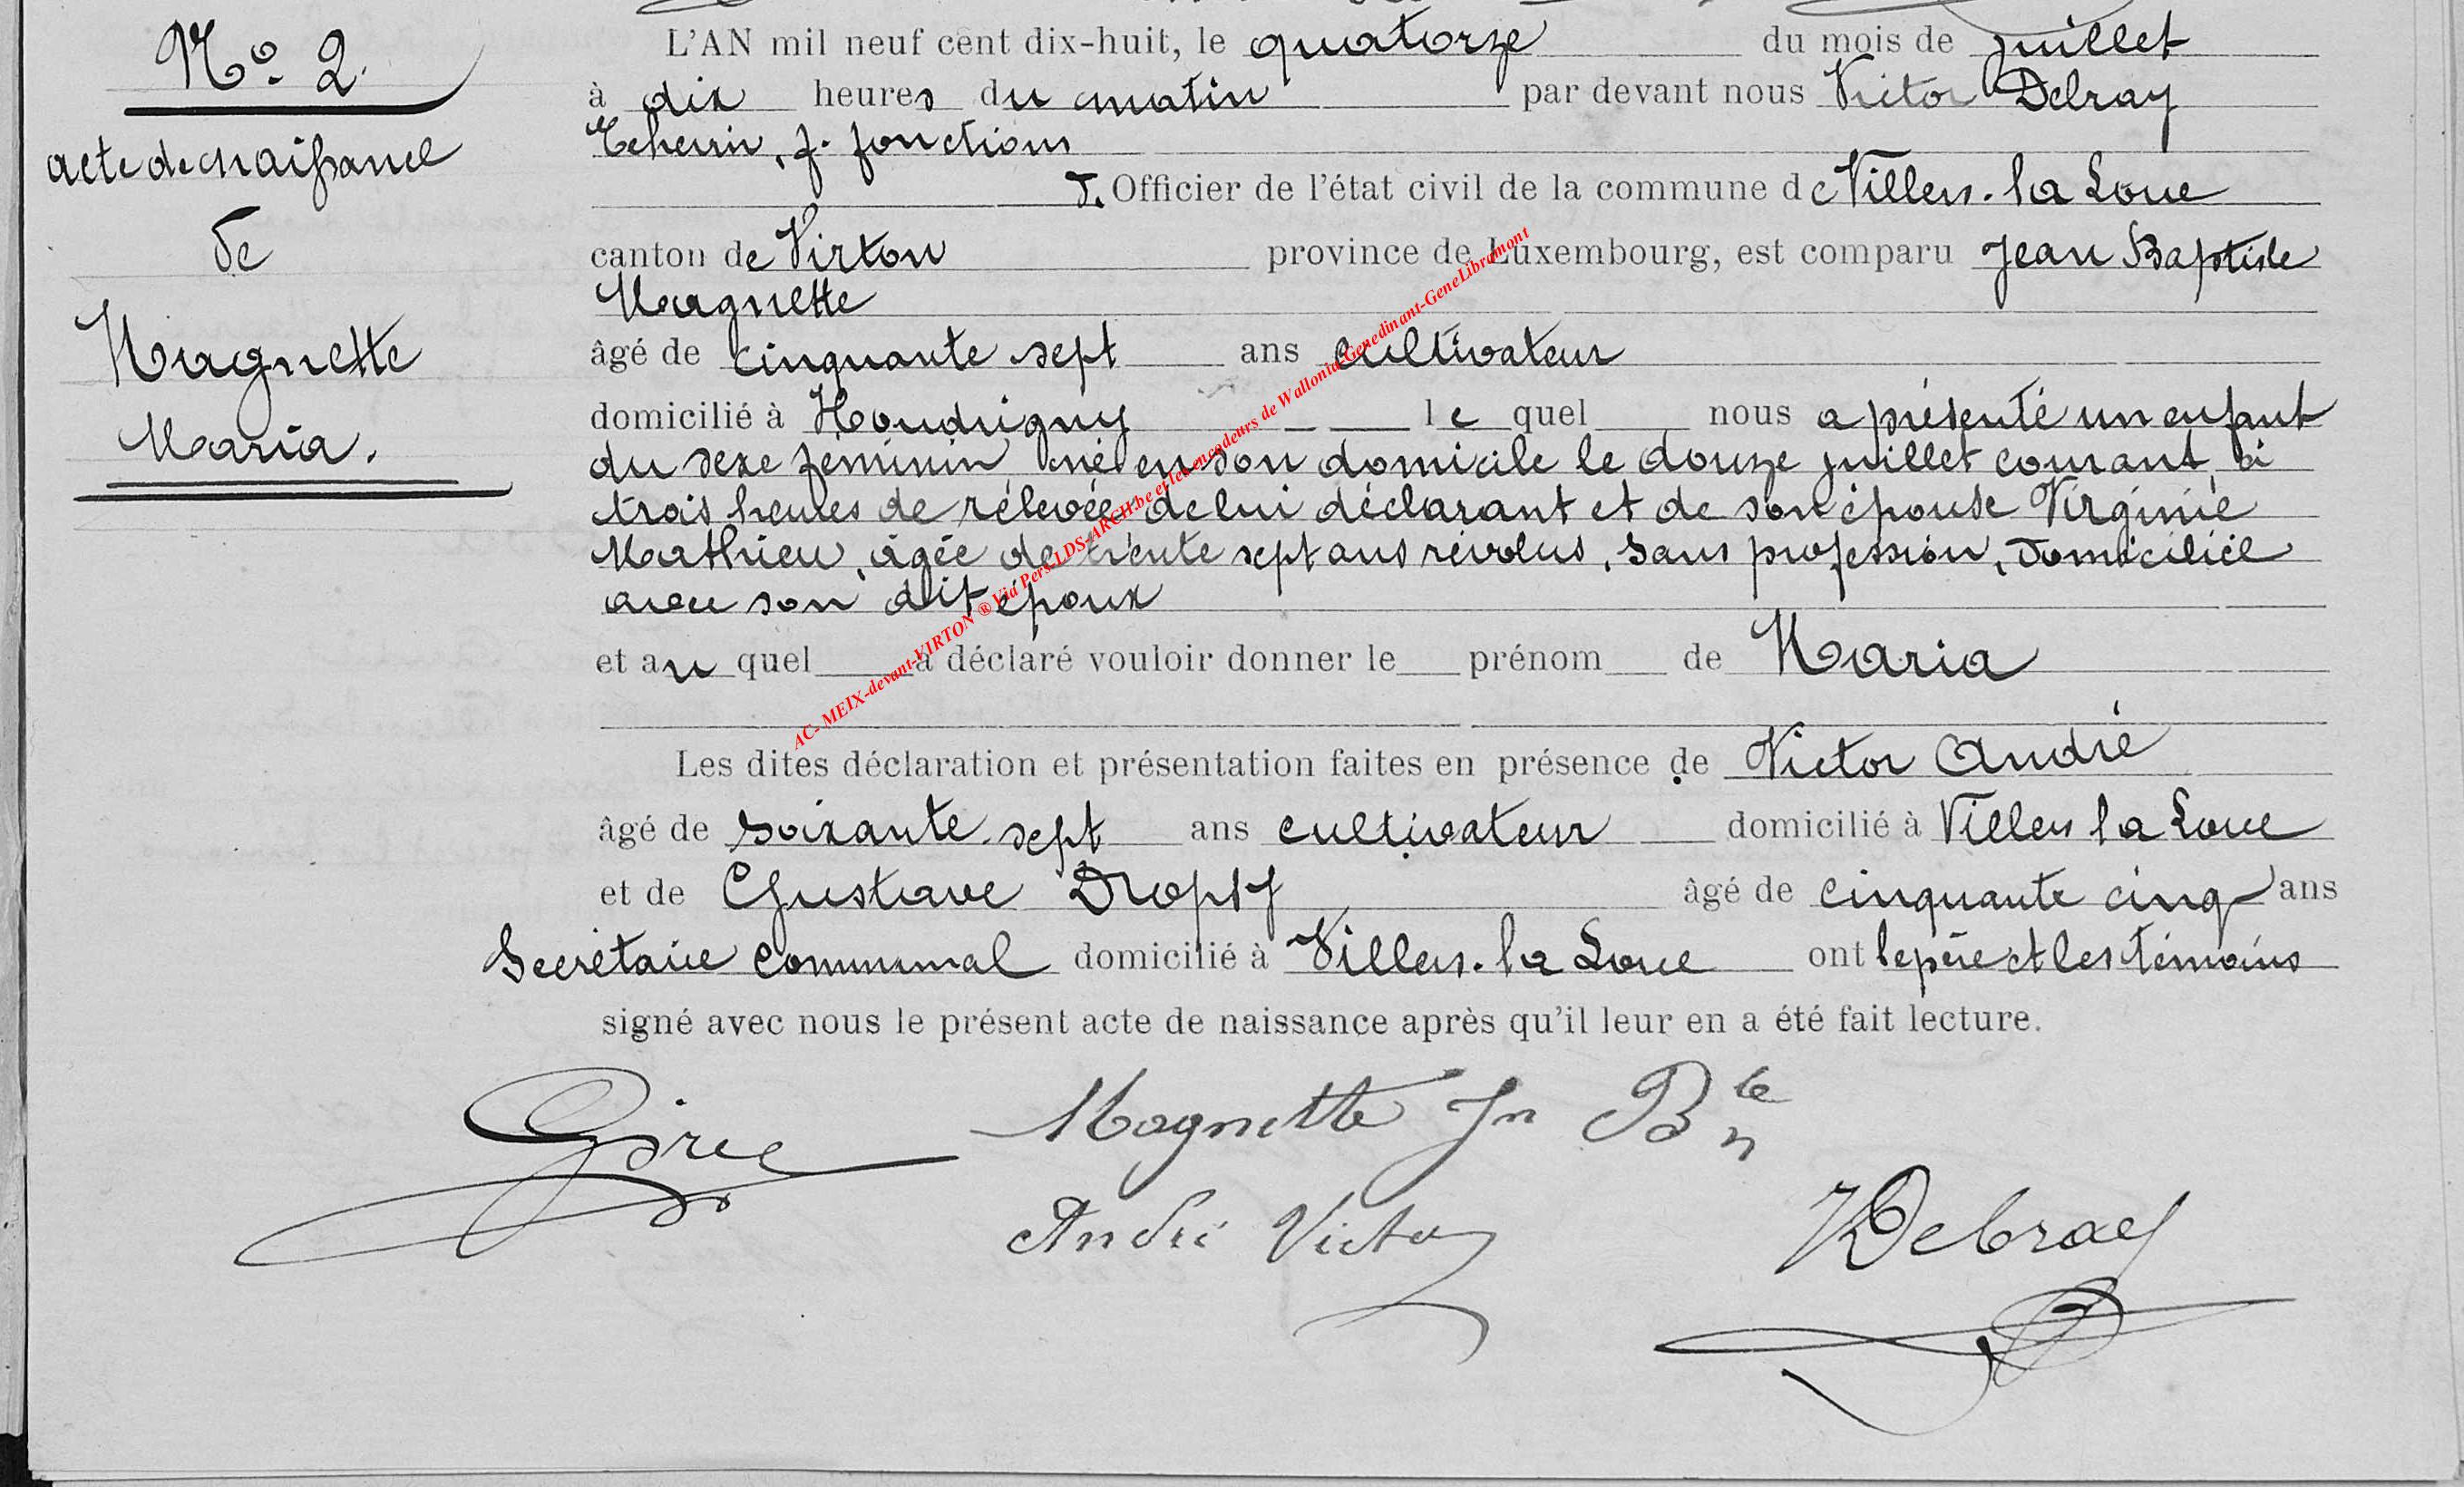 N° 2.
acte de naissance
de
Magnette
Maria.
L'AN mil neuf cent dix-huit, le quatorze du mois de juillet
à dix heures du matin par devant nous Victor Debray
Echevin, f. fonctions
d. Officier de l'état civil de la commune de Villers-la Loue
canton de Virton province de Luxembourg, est comparu Jean Baptiste
Magnette
âgé de cinquante sept ans cultivateur
domicilié à Houdrigny le quel nous a présenté un enfant
du sexe féminin né en son domicile le douze juillet courant à
trois heures de rélevée de lui déclarant et de son épouse Virginie
Mathieu, âgée de trente sept ans révolus, sans profession, domiciliée
avec son dit époux
et au quel a déclaré vouloir donner le prénom de Maria
Les dites déclaration et présentation faites en présence de Victor André
âgé de soixante-sept ans cultivateur domicilié à Villers la Loue
et de Gustave Dropsy âgé de cinquante cinq ans
Secrétaire communal domicilié à Villers-la Loue ont le père et les témoins
signé avec nous le présent acte de naissance après qu'il leur en a été fait lecture.
Magnette Jn Bte
André Victor
VDebray
AC- MEIX-devant-VIRTON ® Via Pers-LDS-ARCH.be et les encodeurs de Wallonia-Genedinant-GeneLibramont